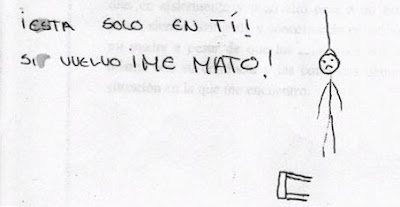 ¡ESTA SOLO EN TÍ!
SI VUELVO ¡ME MATO!